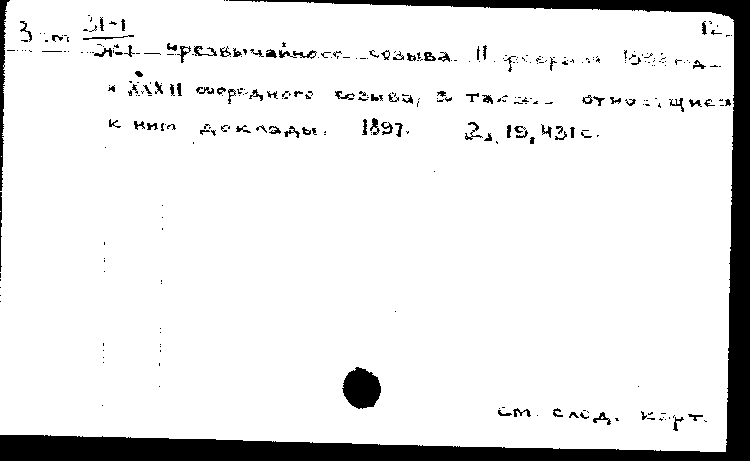 З ст 31-1 12
Ж-1 чрезвычайного созыва 11 февраля 189 года
и XXXII очередного созыва, а также относящиеся
к ним доклады. 1897. 2, 19, 431 с.
см. след. карт.